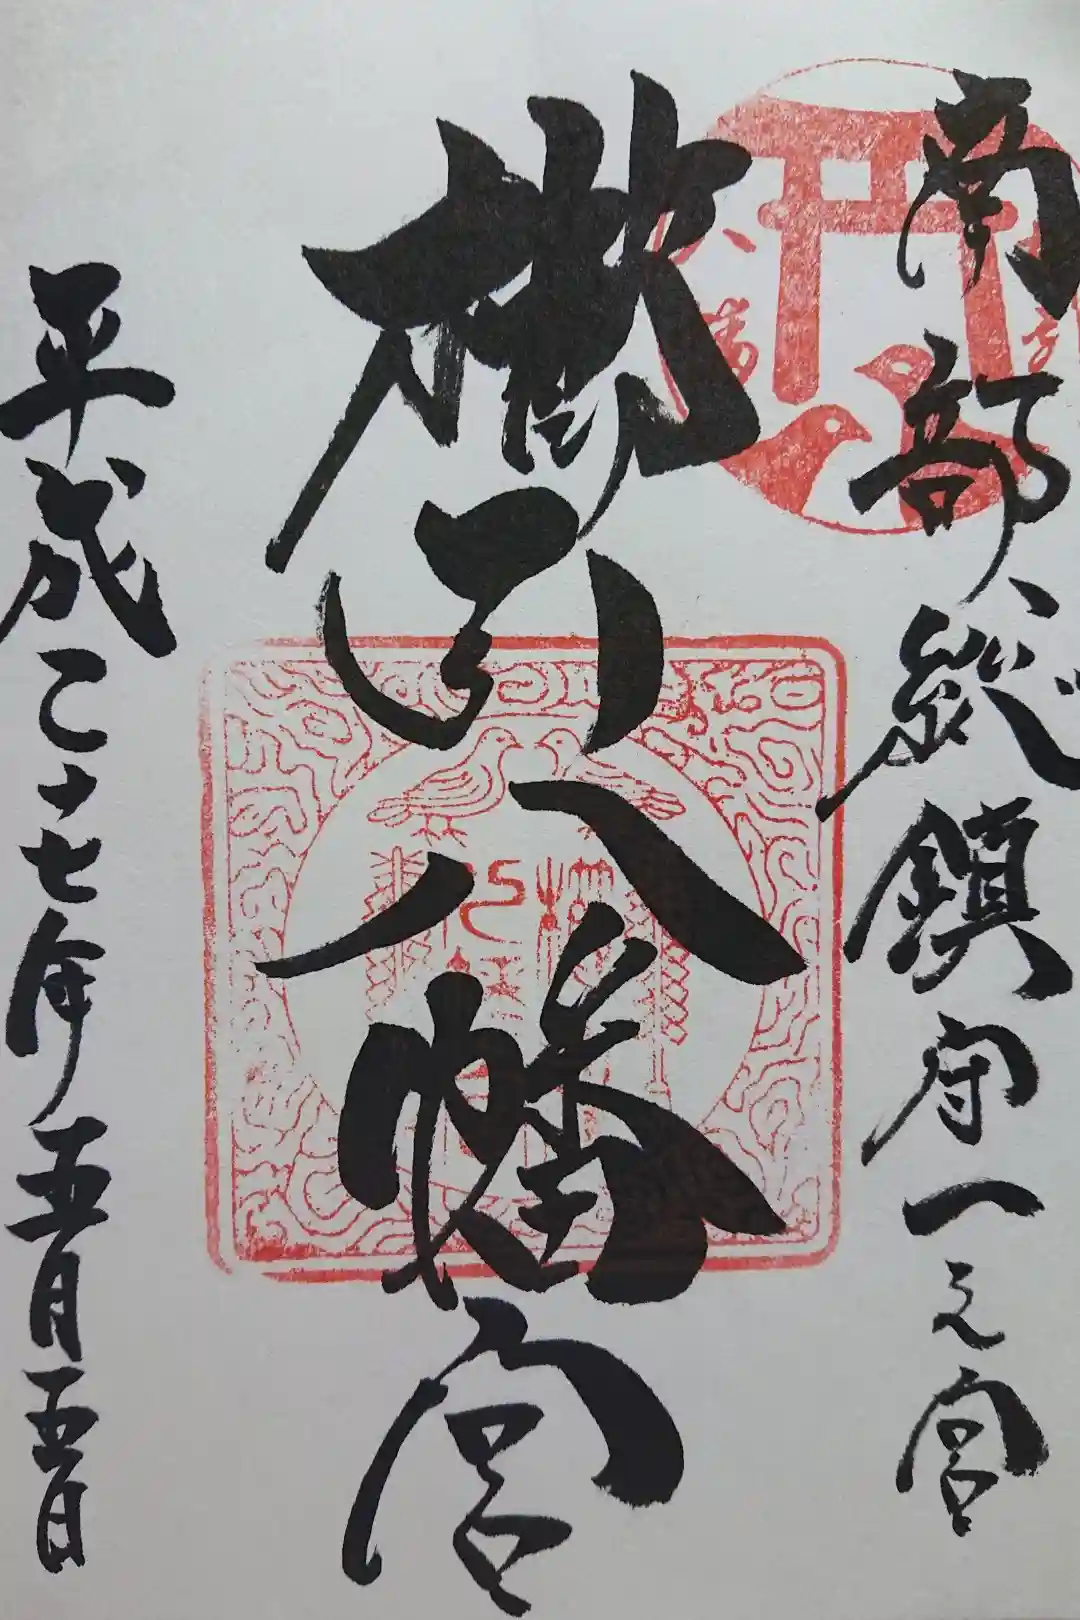 南部総鎮守一之宮
櫛引八幡宮
平成二十七年五月五日
八幡